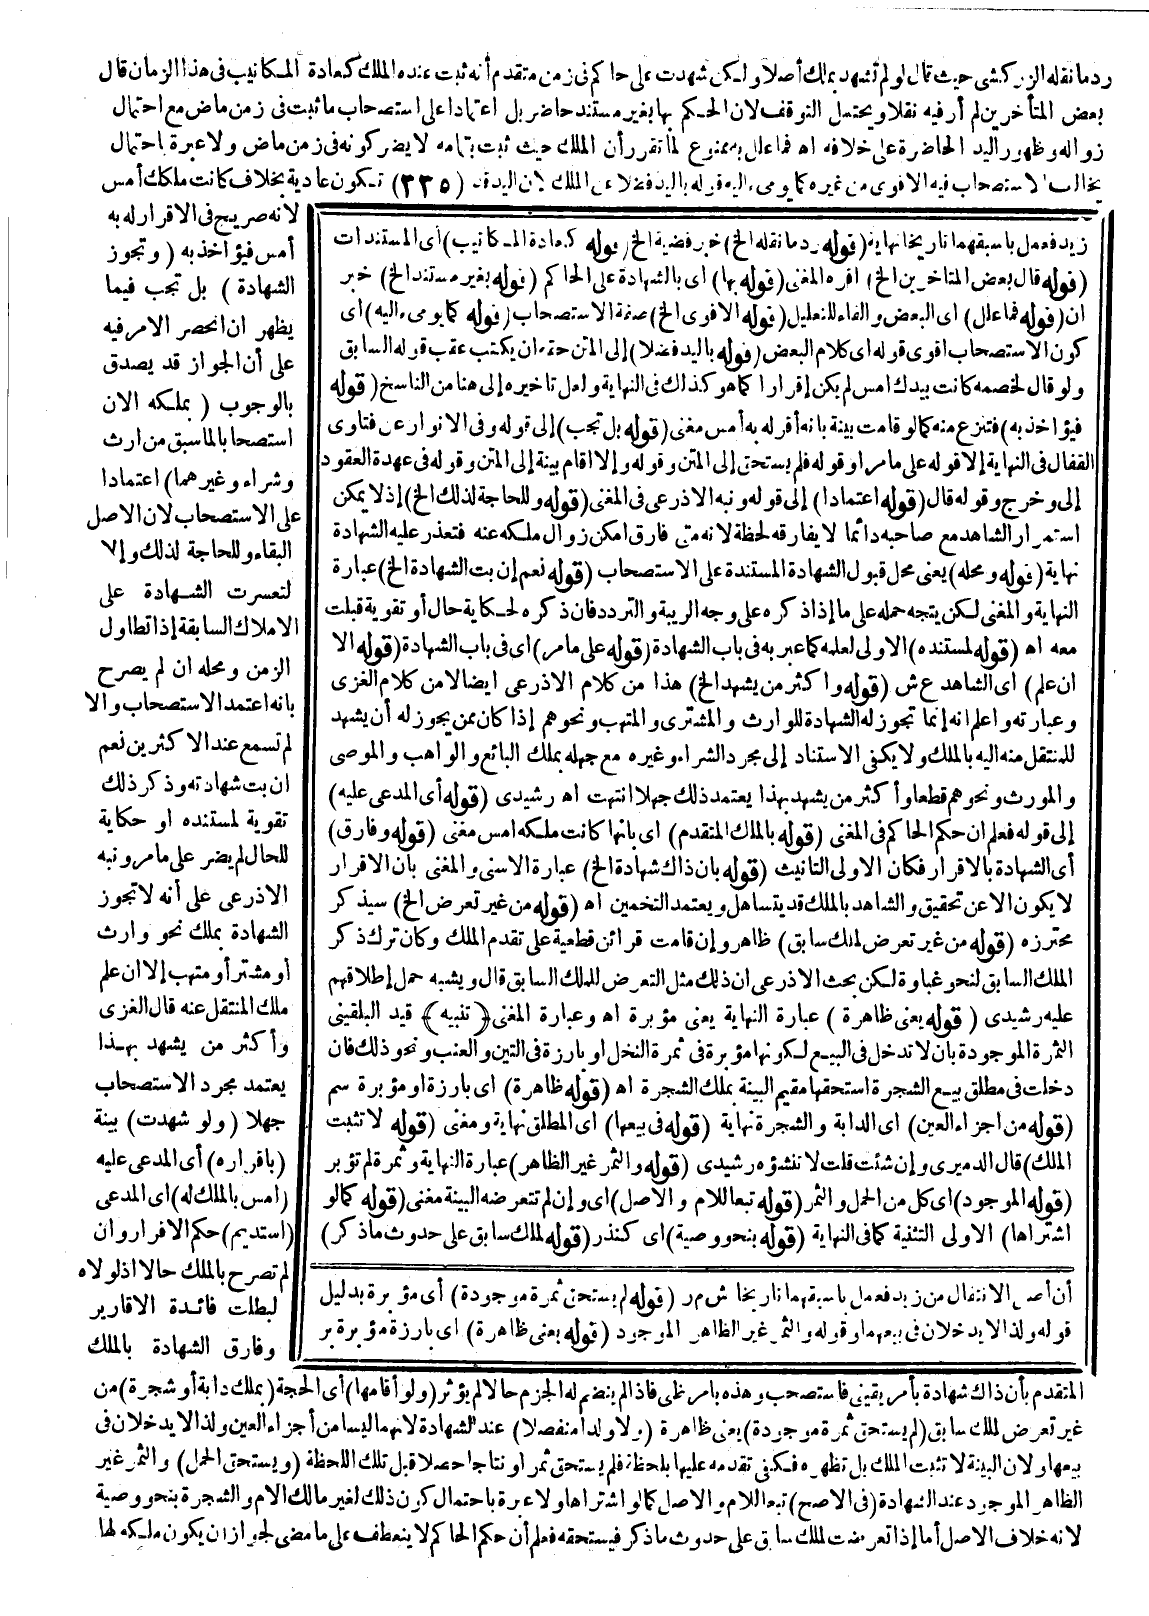 ردما نقله الزركشى حيث قال لو لم تشهد بملك أصلا ولكن شهدت على حاكم فى زمن متقدم أنه ثبت عنده الملك كعادة المكاتيب فى هذا الزمان قال
بعض المتأخرين لم أر فيه نقلا ويحتمل التوقف لان الحكم بها بغير مستند حاضر بل اعتمادا على استصحاب ما ثبت فى زمن ماض مع احتمال
زواله وظهور اليد الحاضرة على خلافه اه فما علل به ممنوع لما تقرر أن الملك حيث ثبت بتمامه لا يضر كونه فى زمن ماض ولا عبرة باحتمال
يخالف الاستصحاب فيه الاقوى من غيره كما يومىء اليه قوله باليد فضلا عن الملك لان اليد قد (٣٣٥) تكون عادية بخلاف كانت ملكك أمس
لانه صريح فى الاقرار له به
أمس فيؤاخذ به (وتجوز
الشهادة) بل تجب فيما
يظهر ان انحصر الامر فيه
على أن الجواز قد يصدق
بالوجوب (بملكه الان
استصحابا لما سبق من ارث
وشراء وغيرهما) اعتمادا
على الاستصحاب لان الاصل
البقاء وللحاجة لذلك والا
لتعسرت الشهادة على
الاملاك السابقة إذا تطاول
الزمن ومحله ان لم يصرح
بانه اعتمد الاستصحاب والا
لم تسمع عند الاكثرين نعم
ان بت شهادته وذكر ذلك
تقوية لمستنده او حكاية
للحال لم يضر على ما مر ونبه
الاذرعى على أنه لا تجوز
الشهادة بملك نحو وارث
أو مشتر أو متهب إلا ان علم
ملك المنتقل عنه قال الغزى
وأكثر من يشهد بهذا
يعتمد مجرد الاستصحاب
جهلا (ولو شهدت) بينة
(باقراره) أى المدعى عليه
(أمس بالملك له) اى المدعى
(استديم) حكم الاقرار وان
لم تصرح بالملك حالا اذ لولاه
لبطلت فائدة الاقارير
وفارق الشهادة بالملك
زيد فعمل باسبقهما تاريخا نهاية (قوله رد ما نقله الخ) خبر قضية الخ (قوله كعادة المكاتيب) أى المستندات
(قوله قال بعض المتاخرين الخ) اقره المغنى (قوله بها) اى بالشهادة على الحاكم (قوله بغير مستند الخ) خبر
ان (قوله فما علل) اى البعض والفاء للتعليل (قوله الاقوى الخ) صفة الاستصحاب (قوله كما يومىء اليه) اى
كون الاستصحاب اقوى قوله اى كلام البعض (قوله باليد فضلا) إلى المتن حقه ان يكتب عقب قوله السابق
ولو قال لخصمه كانت بيدك امس لم يكن إقرارا كما هو كذلك فى النهاية ولعل تاخيره إلى هنا من الناسخ (قوله
فيؤاخذ به) فتنزع منه كما لو قامت بينة بانه أقر له به أمس مغنى (قوله بل تجب) إلى قوله وفى الانوار عن فتاوى
القفال فى النهاية إلا قوله على ما مر او قوله فلم يستحق إلى المتن وقوله والا اقام بينة إلى المتن وقوله فى عهدة العقود
إلى وخرج وقوله قال (قوله اعتمادا) إلى قوله ونبه الاذرعى فى المغنى (قوله وللحاجة لذلك الخ) إذ لا يمكن
استمرار الشاهد مع صاحبه دائما لا يفارقه لحظة لانه متى فارق امكن زوال ملكه عنه فتعذر عليه الشهادة
نهاية (قوله ومحله) يعنى محل قبول الشهادة المستندة على الاستصحاب (قوله نعم إن بت الشهادة الخ) عبارة
النهاية والمغنى لكن يتجه حمله على ما إذا ذكره على وجه الريبة والتردد فان ذكره لحكاية حال أو تقوية قبلت
معه اه (قوله لمستنده) الاولى لعلمه كما عبر به فى باب الشهادة (قوله على ما مر) اى فى باب الشهادة (قوله الا
ان علم) اى الشاهد ع ش (قوله واكثر من يشهد الخ) هذا من كلام الاذرعى ايضا لا من كلام الغزى
وعبارته واعلم انه إنما تجوز له الشهادة للوارث والمشترى والمتهب ونحوهم إذا كان ممن يجوز له أن يشهد
للمنتقل منه اليه بالملك ولا يكفى الاستناد إلى مجرد الشراء وغيره مع جهله بملك البائع والواهب والموصى
والمورث ونحوهم قطعا وأكثر من يشهد بهذا يعتمد ذلك جهلا انتهت اه رشيدى (قوله أى المدعى عليه)
إلى قوله فعلم ان حكم الحاكم فى المغنى (قوله بالملك المتقدم) اى بانها كانت ملكه امس مغنى (قوله وفارق)
أى الشهادة بالاقرار فكان الاولى التانيث (قوله بان ذاك شهادة الخ) عبارة الاسنى والمغنى بان الاقرار
لا يكون الا عن تحقيق والشاهد بالملك قد يتساهل ويعتمد التخمين اه (قوله من غير تعرض الخ) سيذكر
محترزه (قوله من غير تعرض لملك سابق) ظاهر وإن قامت قرائن قطعية على تقدم الملك وكان ترك ذكر
الملك السابق لنحو غباوة لكن بحث الاذرعى ان ذلك مثل التعرض للملك السابق قال ويشبه حمل إطلاقهم
عليه رشيدى (قوله يعنى ظاهرة) عبارة النهاية يعنى مؤبرة اه وعبارة المغنى ﴿تنبيه﴾ قيد البلقينى
الثمرة الموجودة بان لا تدخل فى البيع لكونها مؤبرة فى ثمرة النخل او بارزة فى التين والعنب ونحو ذلك فان
دخلت فى مطلق بيع الشجرة استحقها مقيم البينة بملك الشجرة اه (قوله ظاهرة) اى بارزة او مؤبرة سم
(قوله من اجزاء العين) اى الدابة والشجرة نهاية (قوله فى بيعها) اى المطلق نهاية ومغنى (قوله لا تثبت
الملك) قال الدميرى وإن شئت قلت لا تنشؤه رشيدى (قوله والثمر غير الظاهر) عبارة النهاية وثمرة لم تؤبر
(قوله الموجود) اى كل من الحمل والثمر (قوله تبعا للام والاصل) اى وإن لم تتعرضه البينة مغنى (قوله كما لو
اشتراها) الاولى التثنية كما فى النهاية (قوله بنحو وصية) اى كنذر (قوله لملك سابق على حدوث ما ذكر)
أن أصل الانتقال من زيد فعمل باسبقهما تاريخا ش م ر (قوله لم يستحق ثمرة موجودة) أى مؤبرة بدليل
قوله ولذا لا يدخلان فى بيعهما وقوله والثمر غير الظاهر الموجود (قوله يعنى ظاهرة) اى بارزة مؤبرة بر
المتقدم بأن ذاك شهادة بأمر يقينى فاستصحب وهذه بامر ظنى فاذا لم ينضم له الجزم حالا لم يؤثر (ولو أقامها) أى الحجة (بملك دابة أو شجرة) من
غير تعرض لملك سابق (لم يستحق ثمرة موجودة) يعنى ظاهرة (ولا ولدا منفصلا) عند الشهادة لانهما ليسا من أجزاء العين ولذا لا يدخلان فى
بيعها ولان البينة لا تثبت الملك بل تظهره فكفى تقدمه عليها بلحظة فلم يستحق ثمرا ونتاجا حصلا قبل تلك اللحظة (ويستحق الحمل) والثمر غير
الظاهر الموجود عند الشهادة (فى الاصح) تبعا للام والاصل كما لو اشتراها ولا عبرة باحتمال كون ذلك لغير مالك الام والشجرة بنحو وصية
لانه خلاف الاصل أما إذا تعرضت لملك سابق على حدوث ما ذكر فيستحقه فعلم أن حكم الحاكم لا ينعطف على ما مضى لجواز ان يكون ملكه لها